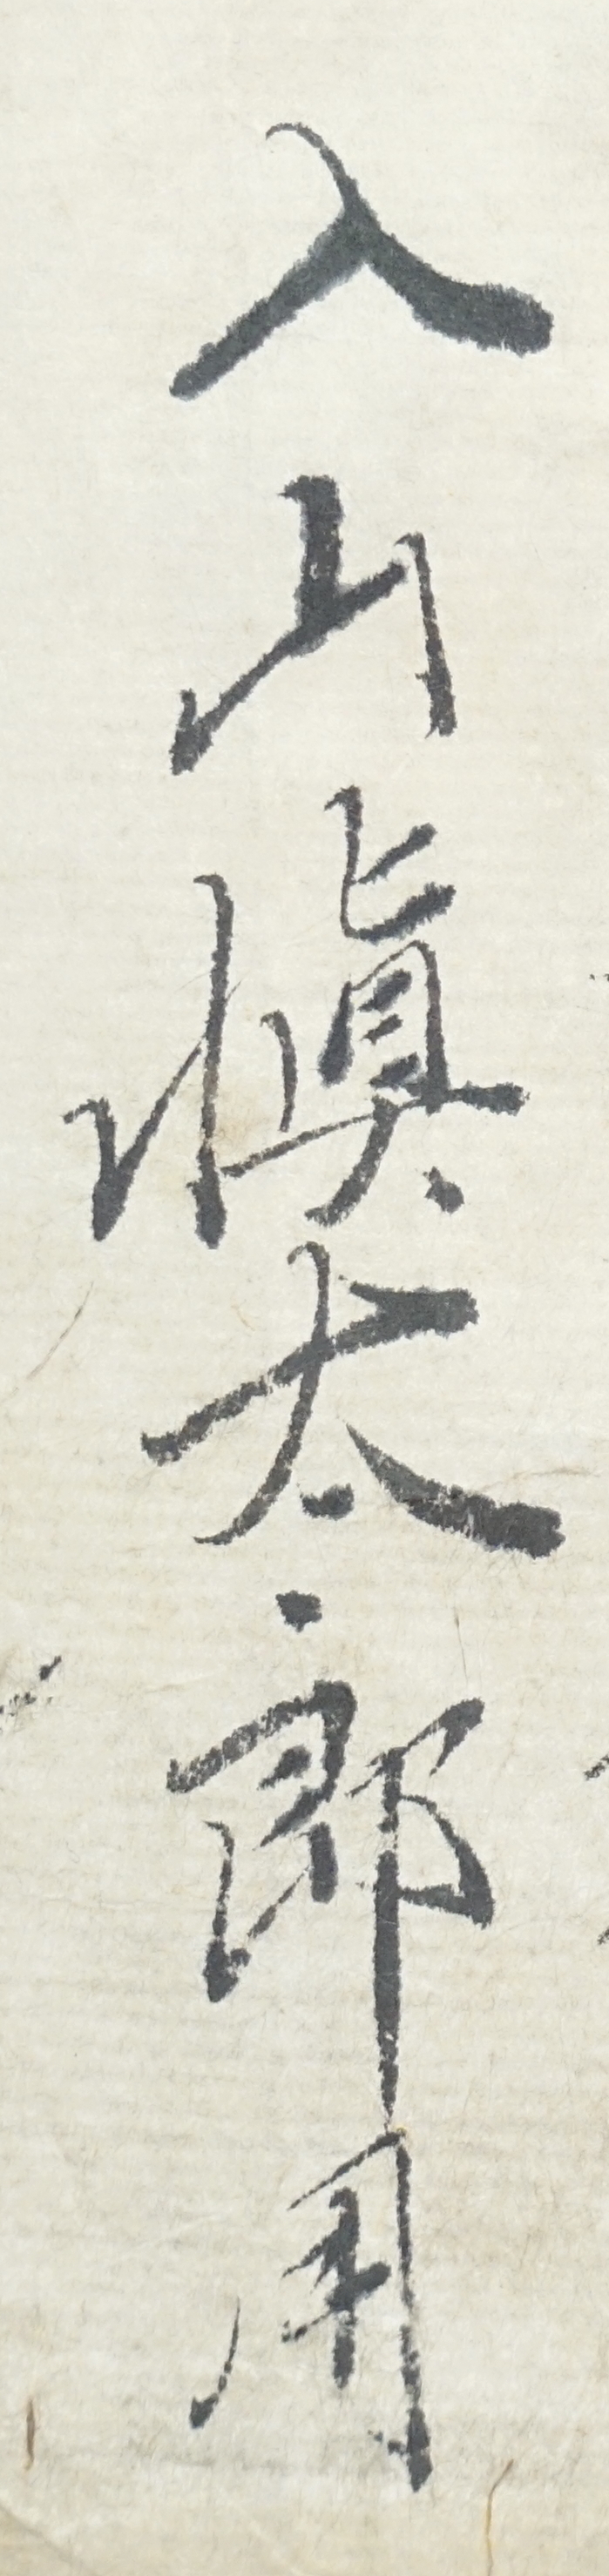 入山愼太郎用